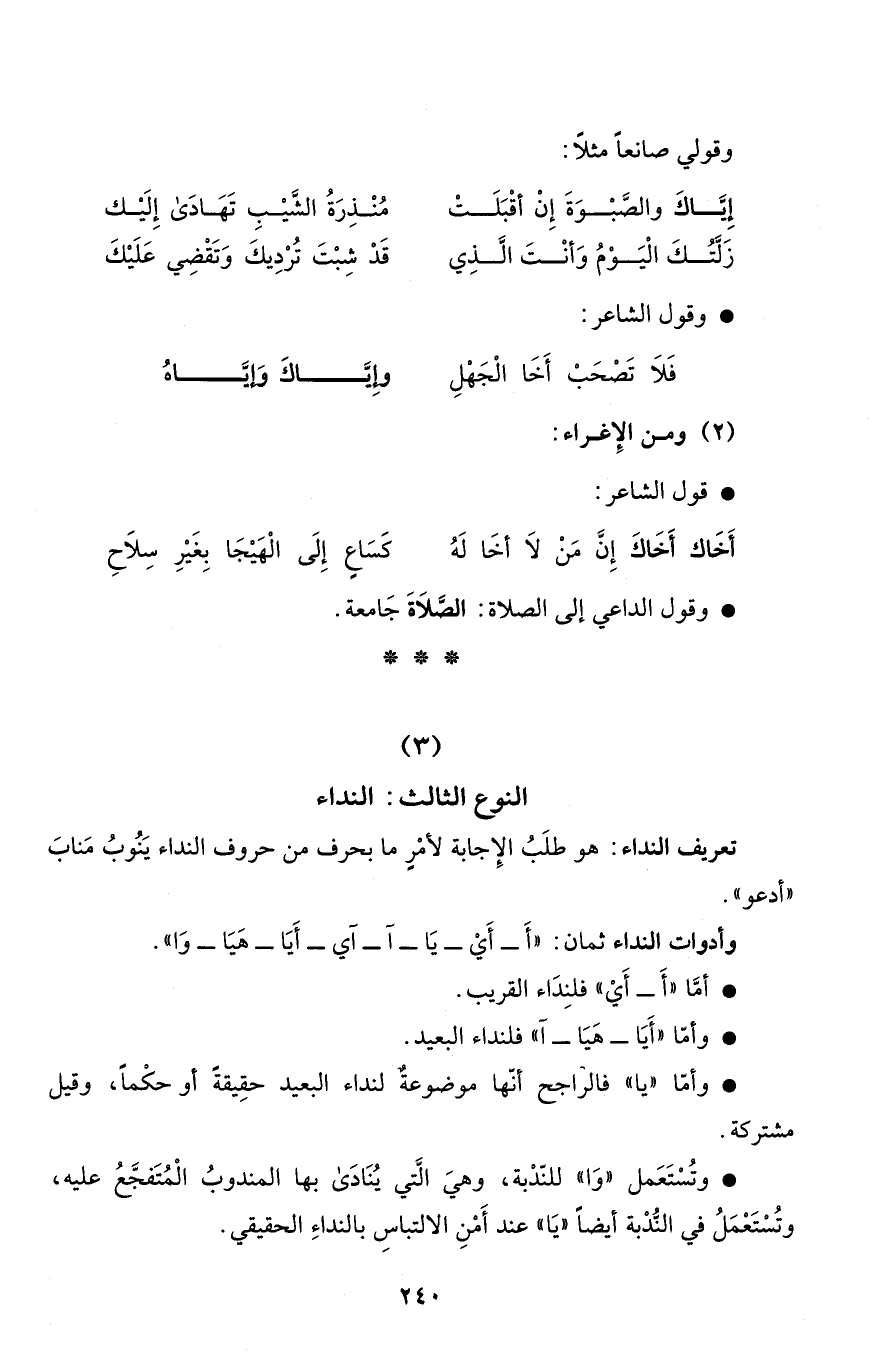 وقولي صانعاً مثلاً:
إِيَّـــاكَ والصَّبْـــوَةَ إِنْ أقْبَلَـــتْ مُنْـذِرَةُ الشَّيْـبِ تَهَـادَىٰ إِلَيْـك
زَلَّتُــكَ الْيَــوْمُ وَأنْــتَ الَّــذِي قَدْ شِبْتَ تُرْدِيكَ وَتَقْضِي عَلَيْكَ
● وقول الشاعر:
فَلَا تَصْحَبْ أَخَا الْجَهْلِ وإِيَّـــــــاكَ وَإِيَّـــــــاهُ
(٢) ومـن الإِغـراء:
● قول الشاعر:
أَخَاك أَخَاكَ إِنَّ مَنْ لاَ أخَا لَهُ كَسَاعٍ إِلَى الْهَيْجَا بِغَيْرِ سِلاَحِ
● وقول الداعي إلى الصلاة: الصَّلَاةَ جَامعة.
* * *
(٣)
النوع الثالث: النداء
تعريف النداء: هو طلَبُ الإِجابة لأمْرٍ ما بحرف من حروف النداء يَنُوبُ مَنابَ
«أدعو».
وأدوات النداء ثمان: «أَ ـ أَيْ ـ يَا ـ آ ـ آي ـ أَيَا ـ هَيَا ـ وَا».
● أمَّا «أَ ـ أَيْ» فلنِدَاء القريب.
● وأمّا «أَيَا ـ هَيَا ـ آ» فلنداء البعيد.
● وأمّا «يا» فالرّاجح أنّها موضوعةٌ لنداء البعيد حقِيقةً أو حكْماً، وقيل
مشتركة.
● وتُسْتَعَمل «وَا» للنّدْبة، وهيَ الَّتي يُنَادَىٰ بها المندوبُ الْمُتَفجَّعُ عليه،
وتُسْتَعْمَلُ في النُّدْبة أيضاً «يَا» عند أَمْنِ الالتباسِ بالنداءِ الحقيقي.
٢٤٠